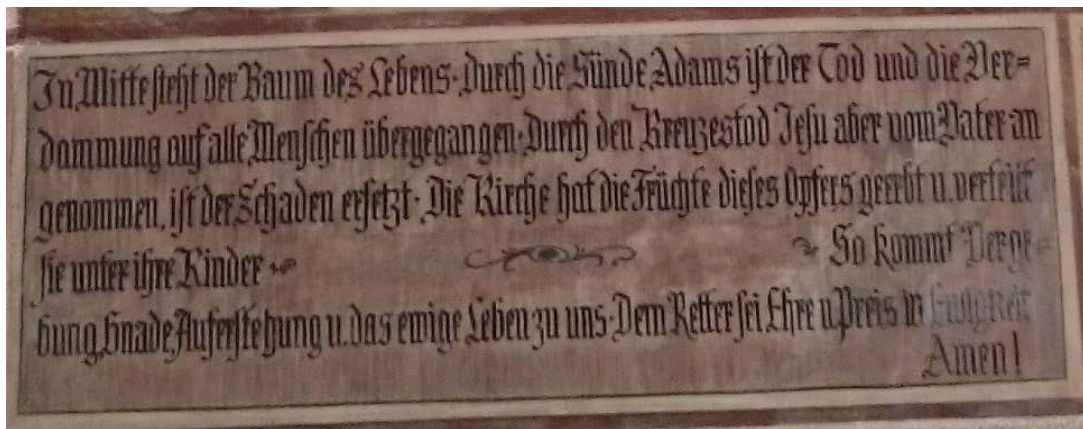 In Mitte steht der Baum des Lebens · Durch die Sünde Adams ist der Tod und die Ver=
dammung auf alle Menschen übergegangen · Durch den Kreuzestod Jesu aber vom Vater an
genommen, ist der Schaden ersetzt · Die Kirche hat die Früchte dieses Opfers geerbt u. verteilt
sie unter ihre Kinder So kommt Verge=
bung, Gnade, Auferstehung u. das ewige Leben zu uns · Dem Retter sei Ehre u. Preis in Ewigkeit
Amen!